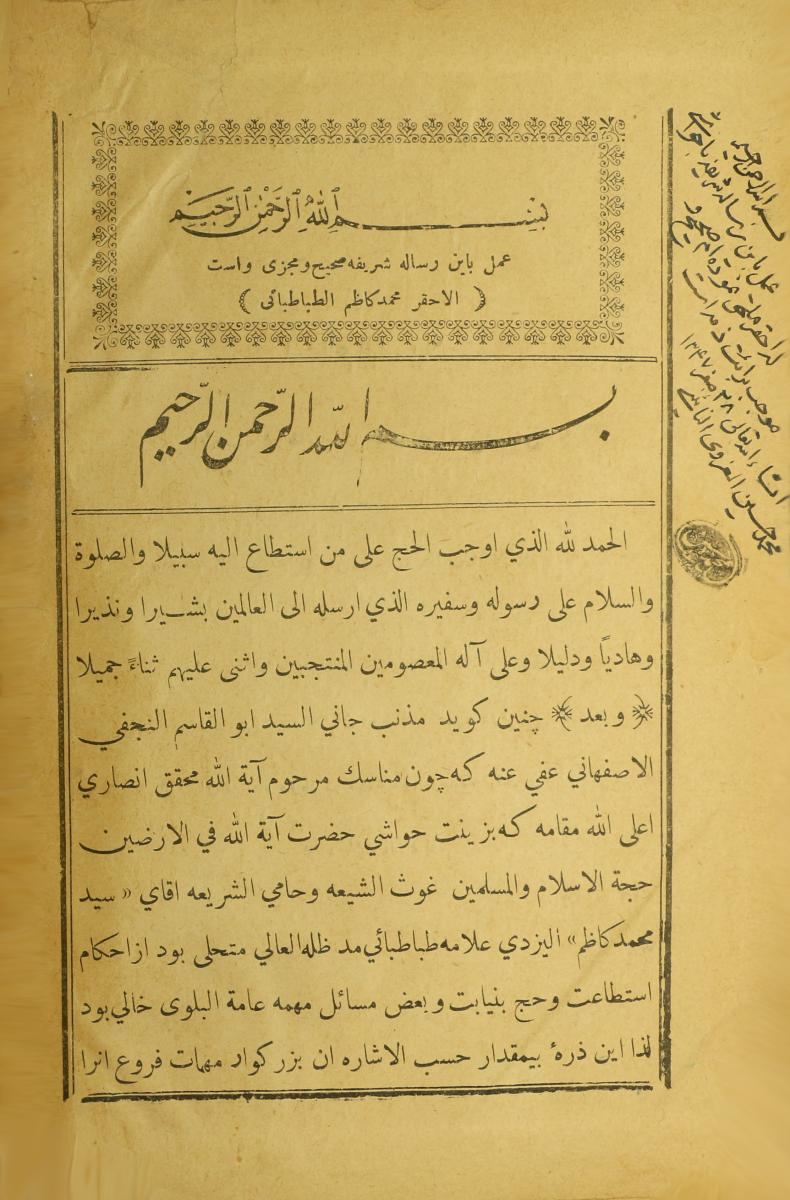 بسم الله الرحمن الرحيم
عمل باین رساله شریفه صحیح و مجزی واست
( الاحقر محمد کاظم الطباطبائی )
بسم الله الرّحمن الرّحیم
الحمد لله الذي اوجب الحج على من استطاع اليه سبيلا والصلوة
والسلام على رسوله وسفيره الذي ارسله الى العالمين بشيرا ونذيرا
وهادياً ودليلا وعلى آله المعصومين المنتجبين واثنى عليهم ثناءً جميلا
﴿ وبعد ﴾ چنین کوید مذنب جاني السيد ابو القاسم النجفي
الاصفهاني عفي عنه که چون مناسك مرحوم آية الله محقق انصاري
اعلى الله مقامه که بزینت حواشي حضرت آية الله في الارضين
حجة الاسلام والمسلمين غوث الشيعه وحامي الشريعه اقاي « سيد
محمد کاظم» اليزدي علامه طباطبائي مد ظله العالي متحلی بود از احکام
استطاعت وحج بنيابت وبعض مسائل مهمه عامة البلوى خالي بود
لذا این ذرهٔ بیمقدار حسب الاشاره ان بزرکوار مهمات فروع انرا
بسم الله الرحمن الرحیم
عمل باین رساله شریفه با حواشی
که احقر بر آن نموده‌ام صحیح و
موجب برائت ذمه است
انشاء الله تعالی ۲۸ صفر ۱۳۴۷
محمد حسین الغروی النائینی